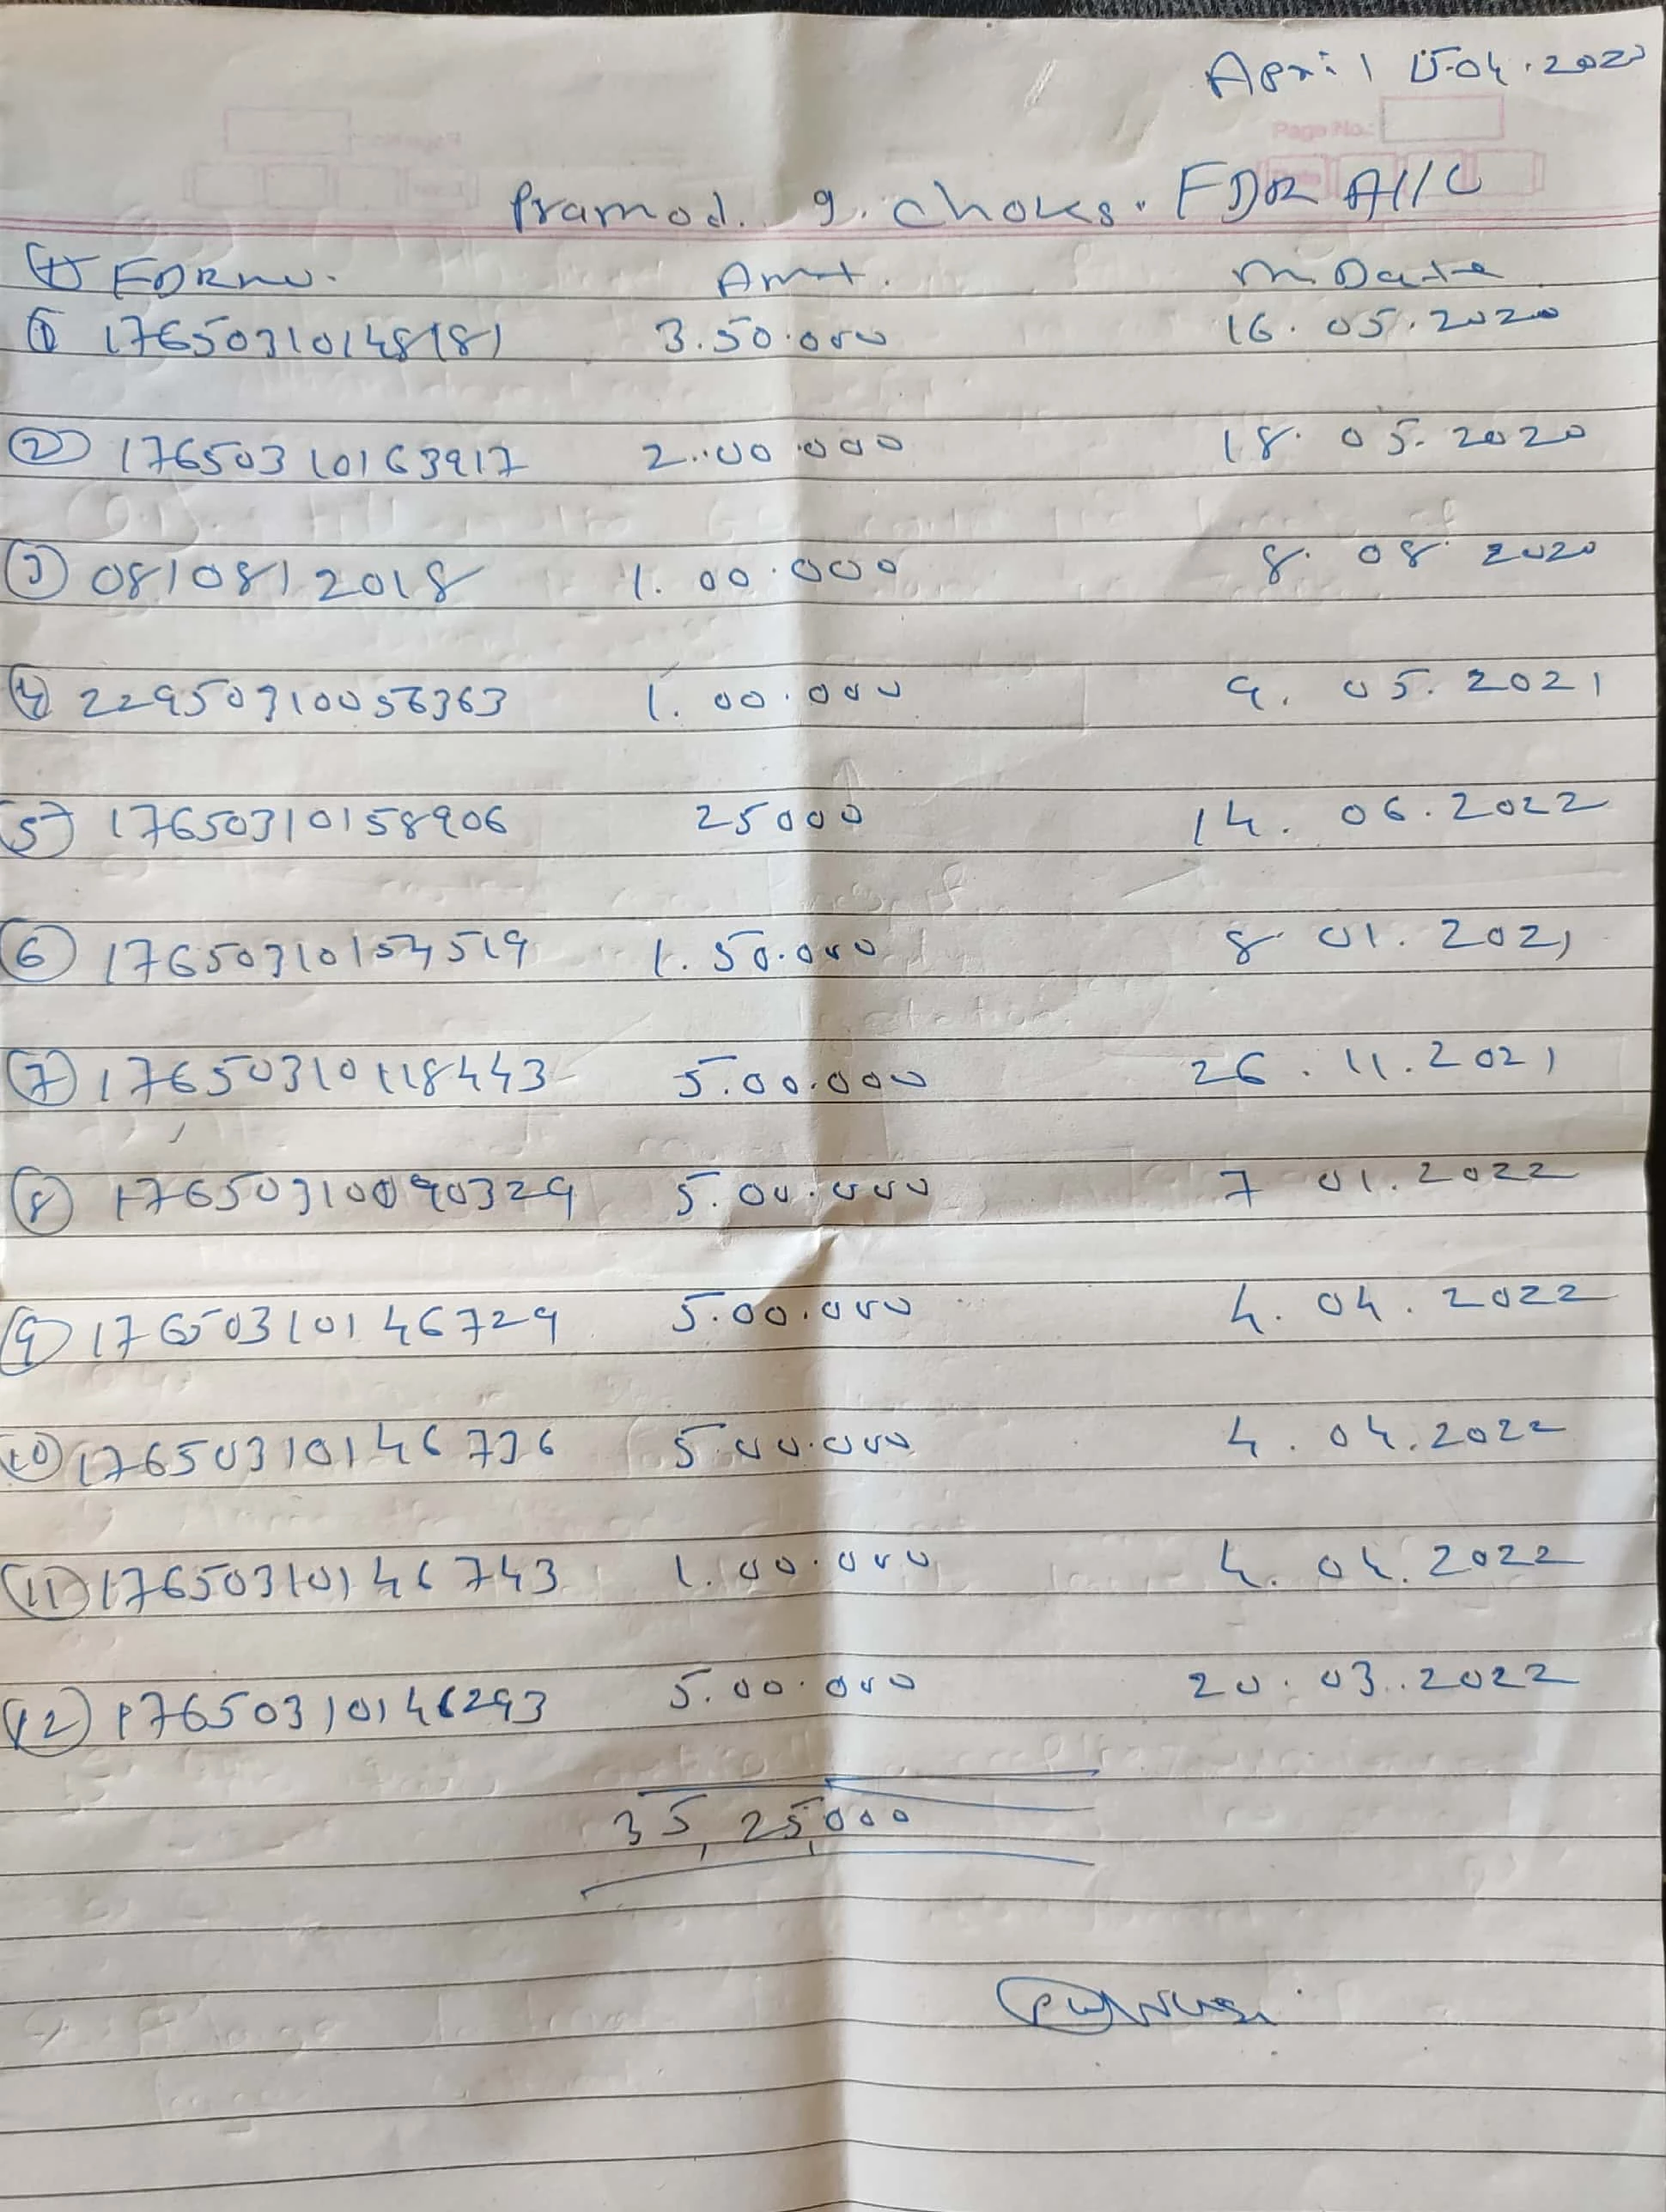 April 15.04.2020
Page No.:
Pramod. g. choksi FDR A/C
FDR no. Amt. m. Date
① 17650310148181 3.50.000 16.05.2020
② 17650310163917 2.00.000 18.05.2020
③ 08/08/2018 1.00.000 8.08.2020
④ 22950310056363 1.00.000 9.05.2021
⑤ 17650310158906 25000 14.06.2022
⑥ 17650310154519 1.50.000 8 01.2021
⑦ 17650310118443 5.00.000 26.11.2021
⑧ 17650310090329 5.00.000 7 01.2022
⑨ 17650310146729 5.00.000 4.04.2022
⑩ 17650310146736 5.00.000 4.04.2022
⑪ 17650310146743 1.00.000 4.04.2022
⑫ 17650310146293 5.00.000 20.03.2022
35,25,000